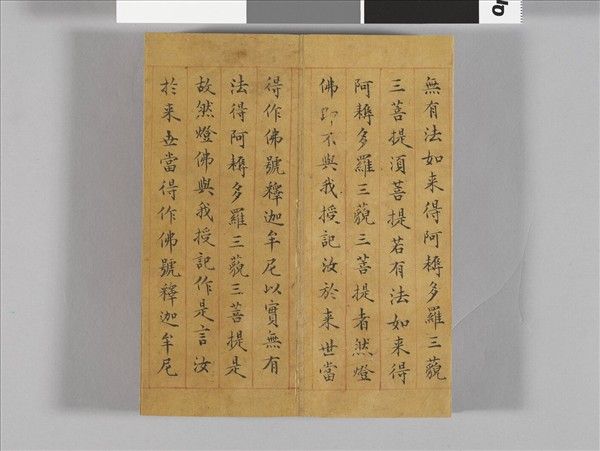 無有法如来得阿耨多羅三藐
三菩提須菩提若有法如来得
阿耨多羅三藐三菩提者然燈
佛即不與我授記汝於来世當
得作佛號釋迦牟尼以實無有
法得阿耨多羅三藐三菩提是
故然燈佛與我授記作是言汝
扵来丗當得作佛號釋迦牟尼